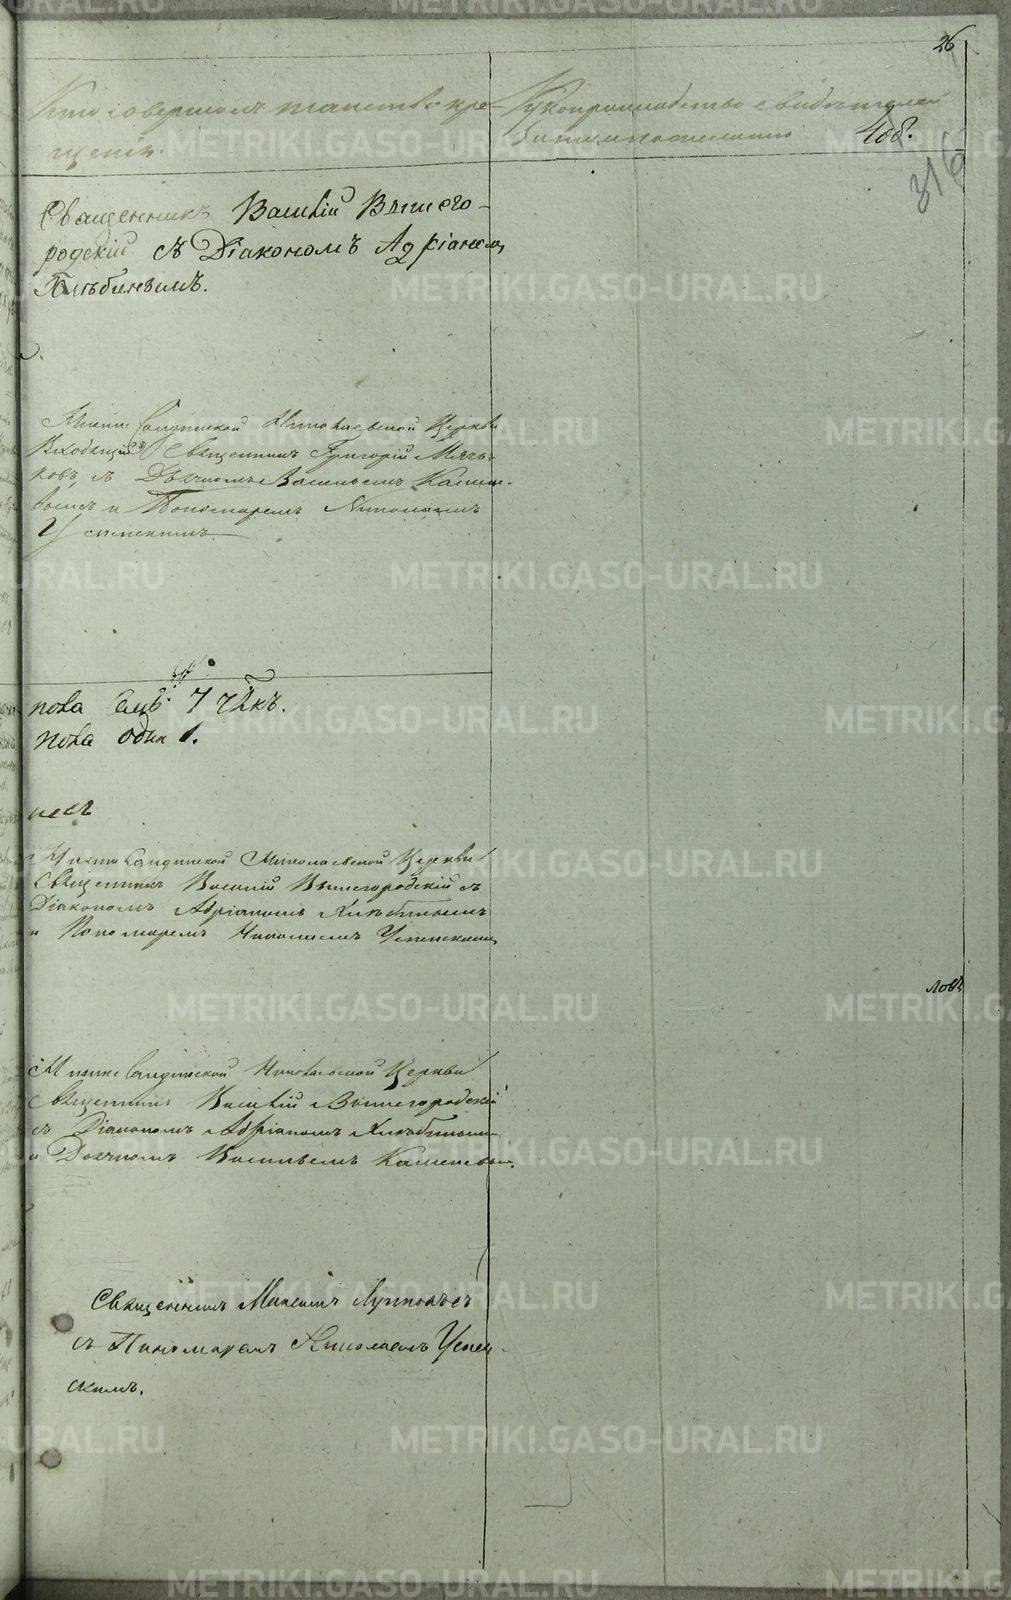 26
Кто совершалъ таинство кре-
щенія.
Рукоприкладство свидѣтелей
записи по желанію
408.
316
Священникъ Василій Вышего-
родскій съ Діакономъ Адріаномъ
Хлѣбинымъ.
Нижне Салдинской Николаевской Церкви
Священникъ Григорій
съ Дьячкомъ Васильемъ
и Пономаремъ Николаемъ
Успенскимъ
пола 7 чъкъ.
пола одна 1.
Нижне Салдинской Николаевской Церкви
Священникъ Василій Вышегородскій съ
Діакономъ Адріаномъ Хлѣбинымъ
и Пономаремъ Николаемъ Успенскимъ
ловъ
Нижне Салдинской Николаевской Церкви
Священникъ Василій Вышегородскій
съ Діакономъ Адріаномъ Хлѣбинымъ
и Дьячкомъ Васильемъ
Священникъ Максимъ
съ Пономаремъ Николаемъ Успен-
скимъ.
METRIKI.GASO-URAL.RU